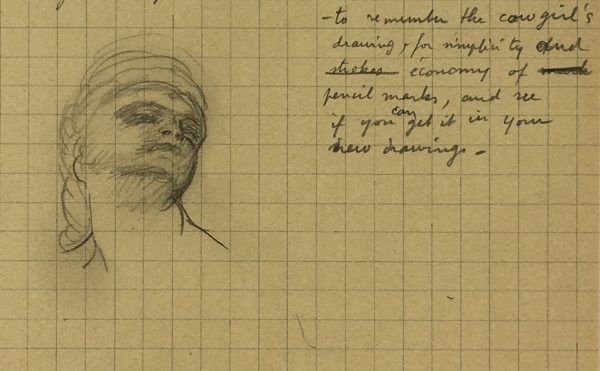 - to remember the cowgirl's
drawing, for simplicity and
strokes economy of
pencil marks, and see
if you can get it in your
new drawings -